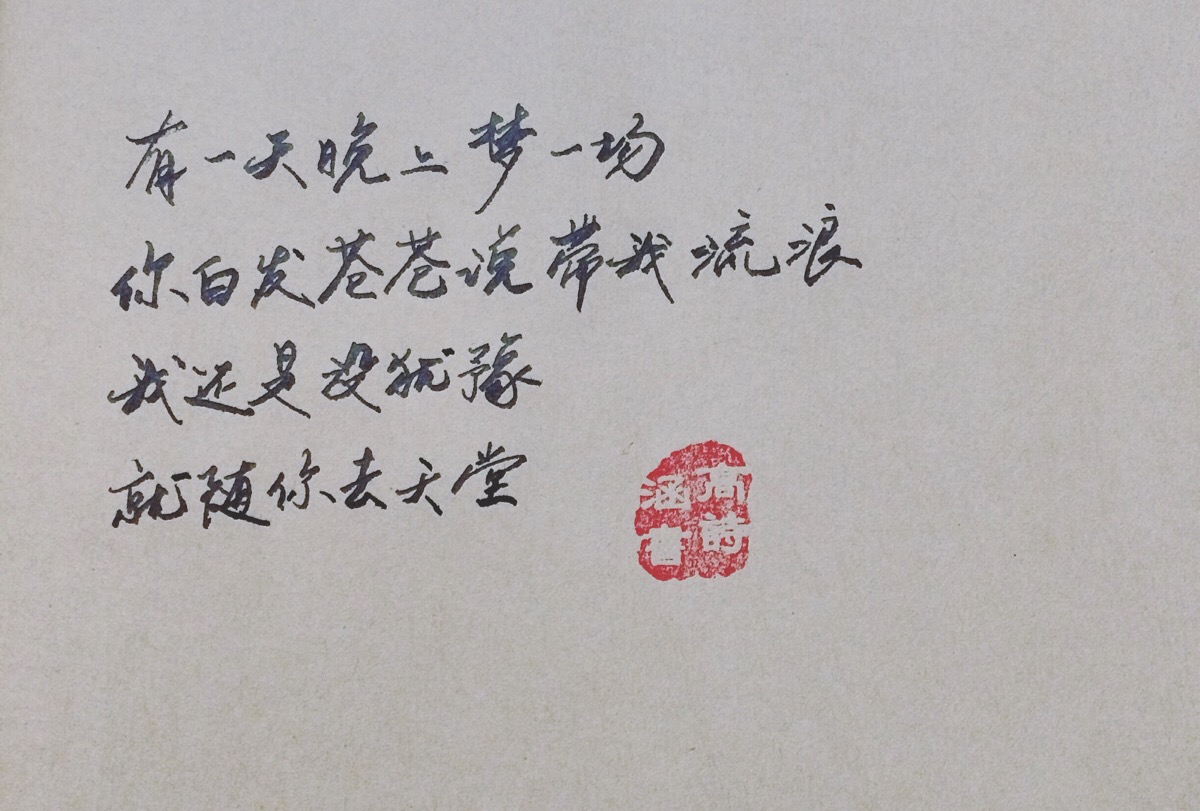 有一天晚上梦一场
你白发苍苍说带我流浪
我还是没犹豫
就随你去天堂
高诗
涵书